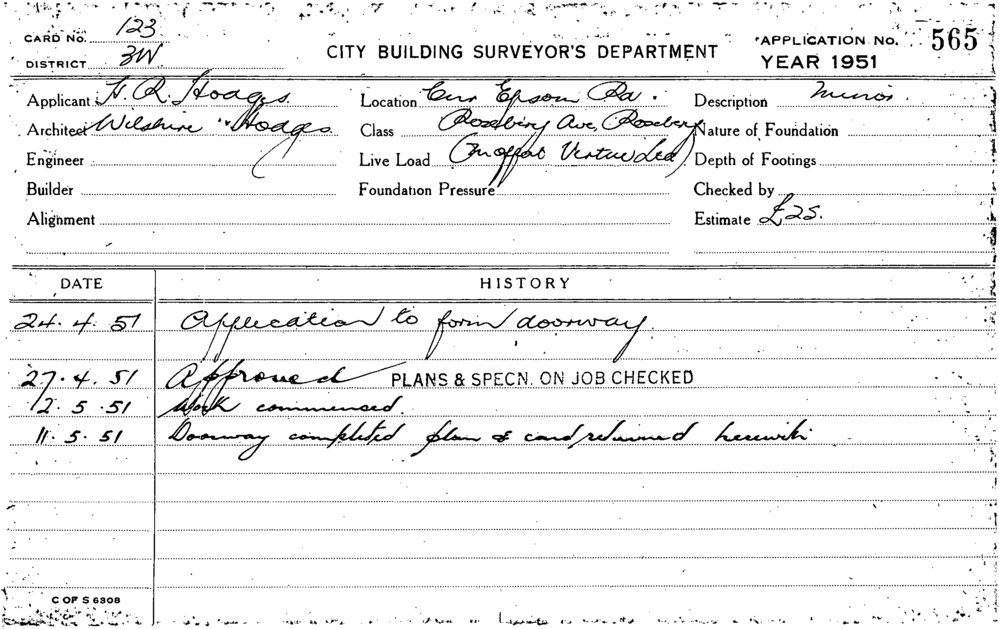 CARD No. 123
DISTRICT 3W
CITY BUILDING SURVEYOR'S DEPARTMENT
APPLICATION No. 565
YEAR 1951
Applicant H. R. Hodges. Location Cnr Epsom Rd. Description Minor.
Architect Wilshire & Hodges Class Rosebery Ave, Rosebery Nature of Foundation
Engineer Live Load (Moffat Virtue Ltd) Depth of Footings
Builder Foundation Pressure Checked by
Alignment Estimate £25.
DATE HISTORY
24. 4. 51 Application to form doorway.
27. 4. 51 Approved PLANS & SPECN. ON JOB CHECKED
2. 5. 51 Work commenced.
11. 5. 51 Doorway completed plan & card returned herewith
C OF S 6308